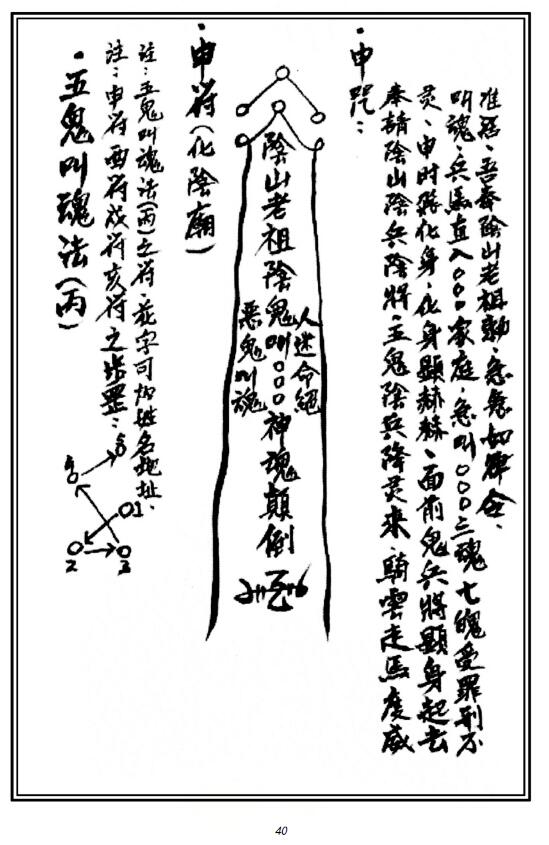 ·五鬼叫魂法(丙)
注:申符酉符戌符亥符之步罡:
1
2
3
注:五鬼叫魂法(丙)之符,花字可加姓名地址.
·申符(化陰廟)
惡鬼叫魂
陰山老祖陰鬼叫○○○神魂顛倒
人迷命絕
·申咒:
奉請陰山陰兵陰將,五鬼陰兵降灵來,騎雲走馬度威
灵,申时符化身,化身顯赫赫,面前鬼兵將顯身起去
叫魂,兵馬直入○○○家庭,急叫○○○三魂七魄受罪刑不
准,吾奉陰山老祖勅,急急如律令.
40